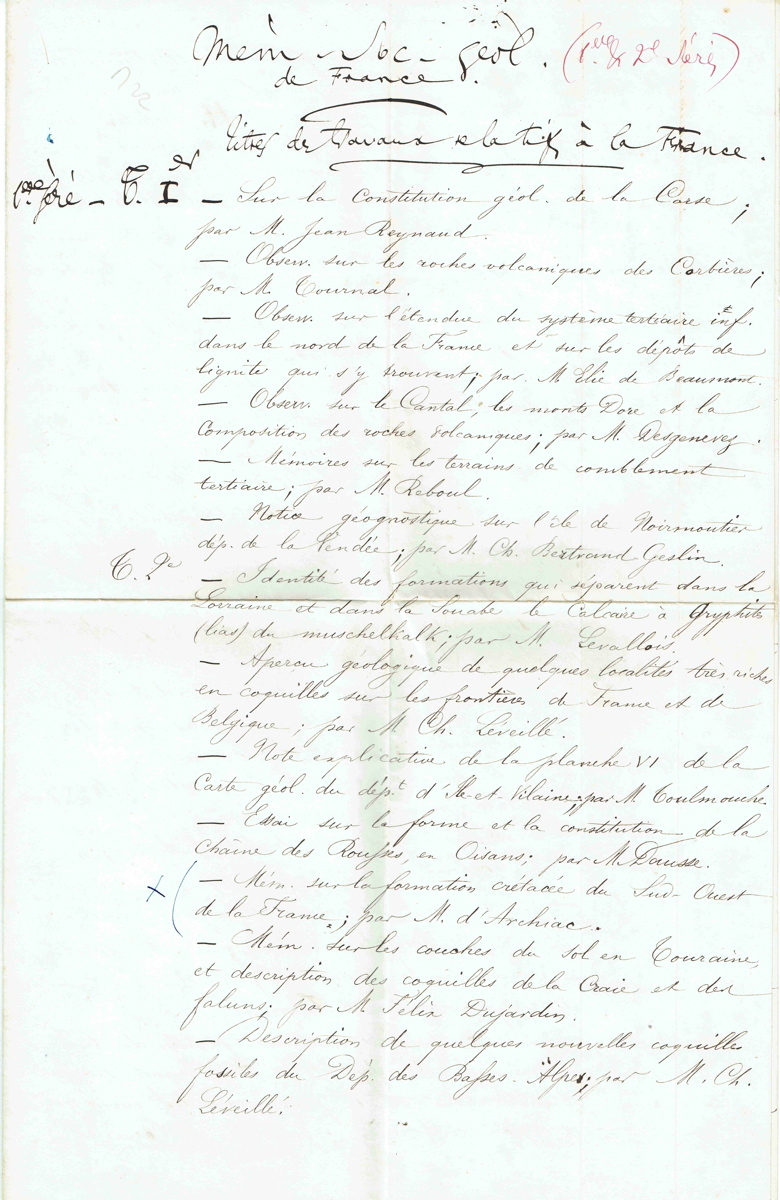 Mém. Soc. géol. (1ere & 2e Série)
de France.
titres de travaux relatifs à la France.
1ere Série – T. Ier – Sur la Constitution géol. de la Corse ;
par M. Jean Reynaud.
– Observ. sur les roches volcaniques des Corbières ;
par M. Tournal.
– Observ. sur l'étendue du système tertiaire inf.
dans le nord de la France et sur les dépôts de
lignite qui s'y trouvent ; par M Elie de Beaumont.
– Observ. sur le Cantal, les monts Dore et la
Composition des roches volcaniques ; par M. Desgenevez.
– Mémoires sur les terrains de comblement
tertiaire ; par M. Reboul.
– Notice géognostique sur l'île de Noirmoutier
dép. de la Vendée ; par M. Ch. Bertrand Geslin.
T. 2e – Identité des formations qui séparent dans la
Lorraine et dans la Souabe le Calcaire à Gryphites
(lias) du muschelkalk ; par M. Levallois.
– Apercu géologique de quelques localités très riches
en coquilles sur les frontières de France et de
Belgique ; par M Ch. Léveillé.
– Note explicative de la planche VI de la
Carte géol. du dépt d'Ile-et-Vilaine ; par M Toulmouche.
– Essai sur la forme et la constitution de la
chaîne des Rousses, en Oisans ; par M. Dausse.
– Mém. sur la formation crétacée du Sud-Ouest
de la France ; par M. d'Archiac.
– Mém. sur les couches du sol en Touraine,
et description des coquilles de la Craie et des
faluns ; par M Félix Dujardin.
– Description de quelques nouvelles coquilles
fossiles du Dép. des Basses-Alpes ; par M. Ch.
Léveillé.